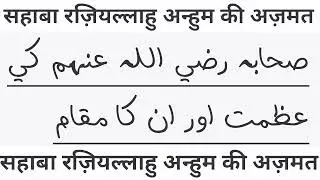 सहाबा रज़ियल्लाहु अन्हुम की अज़मत
صحابہ رضي اللہ عنہم كي
عظمت اور ان کا مقام
सहाबा रज़ियल्लाहु अन्हुम की अज़मत